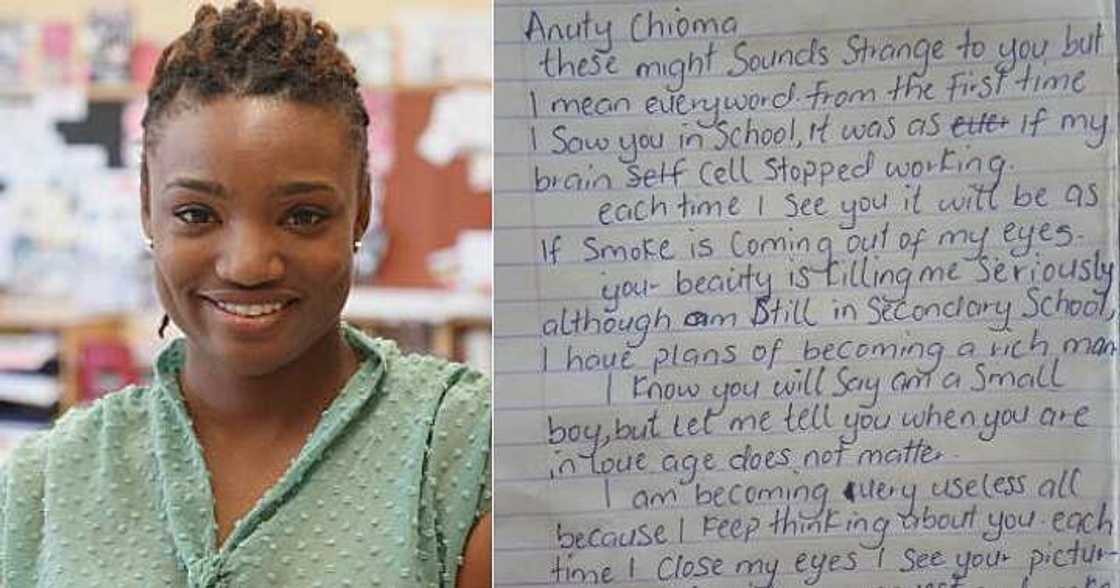 Anuty Chioma
these might Sounds Strange to you but
I mean everyword. from the first time
I Saw you in School, it was as if my
brain Self Cell Stopped working.
each time I See you it will be as
If Smoke is Coming out of my eyes.
your beauity is Killing me Seriously
although am Still in Secondary School,
I have plans of becoming a rich man
I Know you will Say am a Small
boy, but Let me tell you when you are
in love age does not matter.
I am becoming very useless all
because I Keep thinking about you. each
time I Close my eyes I See your pictur